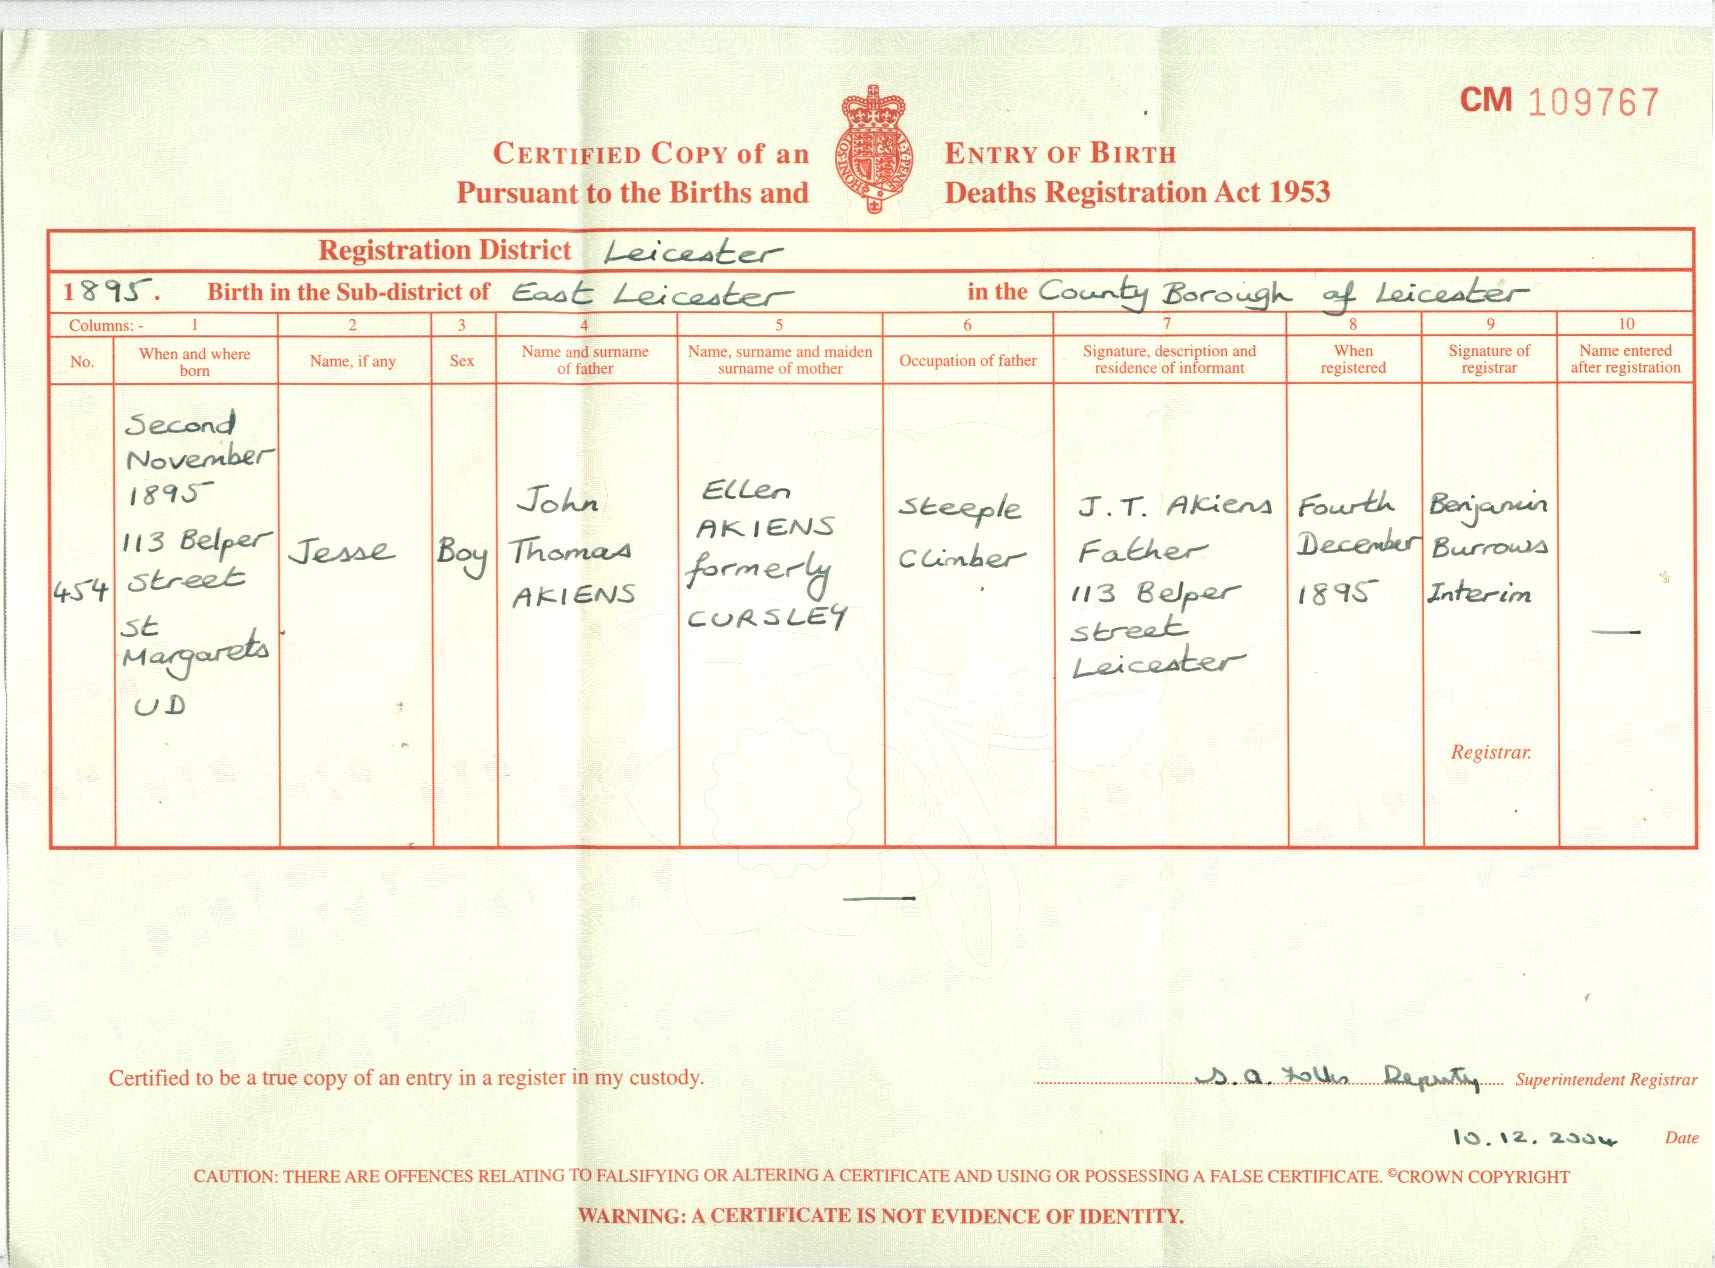 CM 109767
CERTIFIED COPY of an ENTRY OF BIRTH
Pursuant to the Births and Deaths Registration Act 1953
Registration District Leicester
1895. Birth in the Sub-district of East Leicester in the County Borough of Leicester
Columns: - 1 2 3 4 5 6 7 8 9 10
No.
When and where
born
Name, if any
Sex
Name and surname
of father
Name, surname and maiden
surname of mother
Occupation of father
Signature, description and
residence of informant
When
registered
Signature of
registrar
Name entered
after registration
454
Second
November
1895
113 Belper
Street
St
Margarets
UD
Jesse
Boy
John
Thomas
AKIENS
Ellen
AKIENS
formerly
CURSLEY
Steeple
Climber
J.T. Akiens
Father
113 Belper
Street
Leicester
Fourth
December
1895
Benjamin
Burrows
Interim
Registrar.
—
—
Certified to be a true copy of an entry in a register in my custody.
S.A. Deputy Superintendent Registrar
10.12.2004 Date
CAUTION: THERE ARE OFFENCES RELATING TO FALSIFYING OR ALTERING A CERTIFICATE AND USING OR POSSESSING A FALSE CERTIFICATE. ©CROWN COPYRIGHT
WARNING: A CERTIFICATE IS NOT EVIDENCE OF IDENTITY.